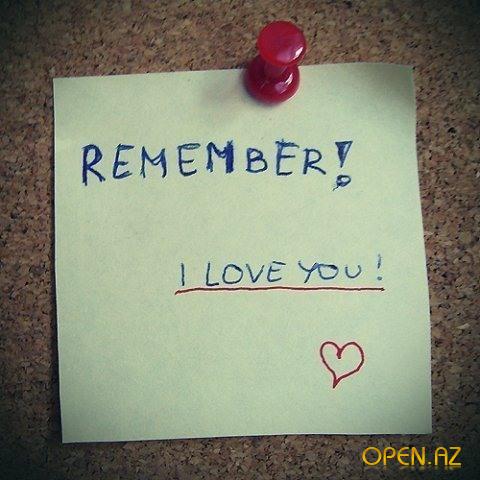 REMEMBER!
I LOVE YOU!
OPEN.AZ